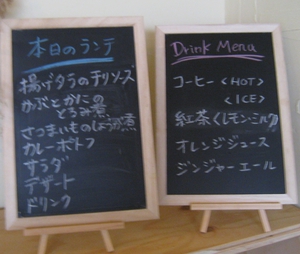 本日のランチ
揚げタラのチリソース
かぶとかにの
とろみ煮
さつまいものしょうが煮
カレーポトフ
サラダ
デザート
ドリンク
Drink Menu
コーヒー〈HOT〉
〈ICE〉
紅茶〈レモン・ミルク〉
オレンジジュース
ジンジャーエール